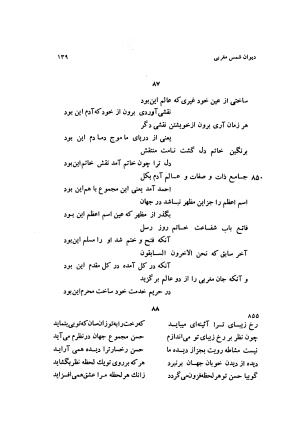 دیوان شمس مغربی
۱۳۹
۸۷
ساختی از عین خود غیری که عالم این بود
نقشی آوردی برون از خود که آدم این بود
هر زمان آری برون از خویشتن نقشی دگر
یعنی از دریای ما موج دمادم این بود
برنگین خاتم دل گشت نامت منتقش
دل ترا چون خاتم آمد نقش خاتم این بود
۸۵۰ جامع ذات و صفات و عالم آدم بکل
احمد آمد یعنی این مجموع با هم این بود
اسم اعظم را جز این مظهر نباشد در جهان
بگذر از مظهر که عین اسم اعظم این بود
فاتح باب شفاعت خاتم روز رسل
آنکه فتح و ختم شد او را مسلم این بود
آخر سابق که نحن الاخرون السابقون
آنکه در کل آمده در کل مقدم این بود
و آنکه جان مغربی را از دو عالم برگزید
در حریم خدمت خود ساخت محرم این بود
۸۸
۸۵۵
رخ زیبای ترا آئینه‌ای میباید
که رخت را بتو زان سان که توئی بنماید
چون نظر بر رخ زیبای تو می‌اندازم
حسن مجموع جهان در نظرم می‌آید
نیست مشاطه رویت بجز از دیده ما
حسن رخسار ترا دیده همی آراید
دیده از دیدن خوبان جهان بربندد
هر که بر روی تو یک لحظه نظر بگشاید
گوییا حسن تو هر لحظه فزون می‌گردد
زانك هر لحظه مرا عشق همی افزاید